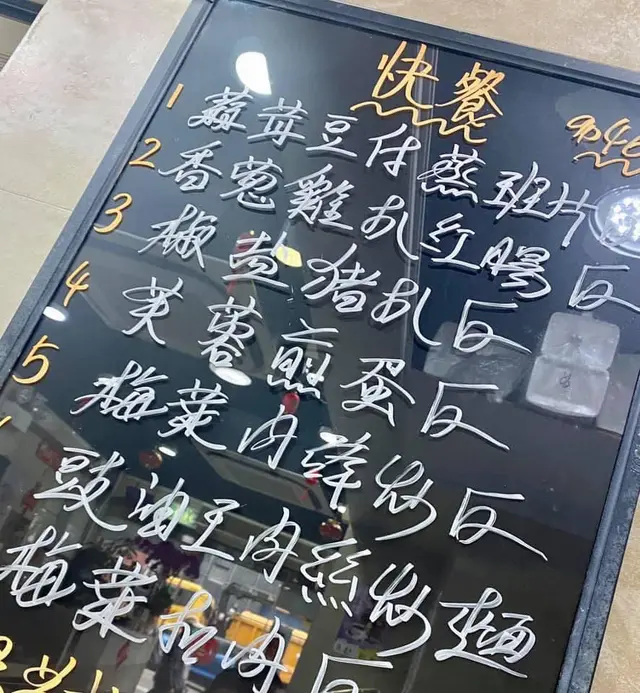 快餐
1 蒜茸豆仔蒸班片
2 香葱雞扒紅腸反
3 椒盐猪扒反
4 芙蓉煎蛋反
5 梅菜肉碎炒反
豉油王肉絲炒麵
梅菜扣肉反